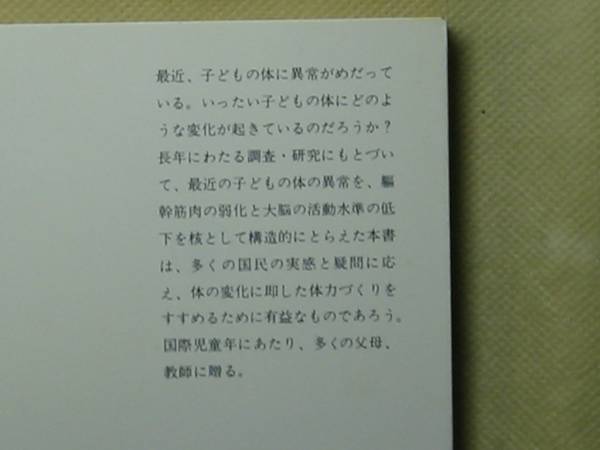 最近、子どもの体に異常がめだって
いる。いったい子どもの体にどのよ
うな変化が起きているのだろうか?
長年にわたる調査・研究にもとづい
て、最近の子どもの体の異常を、軀
幹筋肉の弱化と大脳の活動水準の低
下を核として構造的にとらえた本書
は、多くの国民の実感と疑問に応
え、体の変化に即した体力づくりを
すすめるために有益なものであろう。
国際児童年にあたり、多くの父母、
教師に贈る。